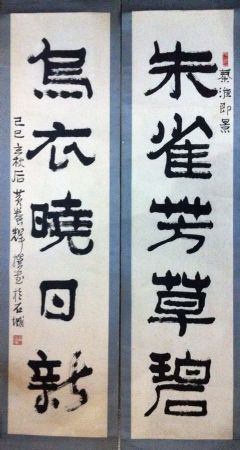 秦淮即景
朱雀芳草碧
烏衣曉日新
己巳立秋后